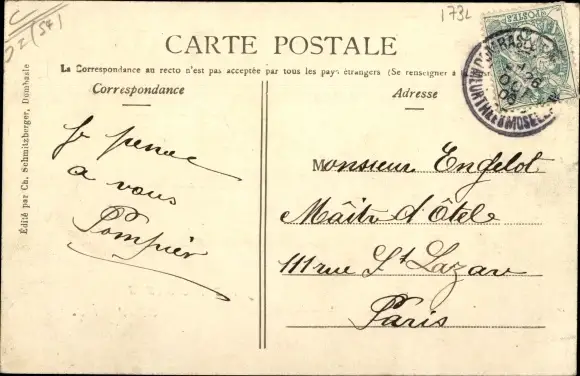 C
DZ (54)
173L
CARTE POSTALE
La Correspondance au recto n'est pas acceptée par tous les pays étrangers (Se renseigner à
Correspondance
Adresse
POSTES
DOMBASLE
26
OCT
MEURTHE ET MOSELLE
Je pense
a vous
Pompier
Monsieur Engelot
Maître d'Ôtele
111 rue St Lazar
Paris
Édité par Ch. Schmitzberger, Dombasle